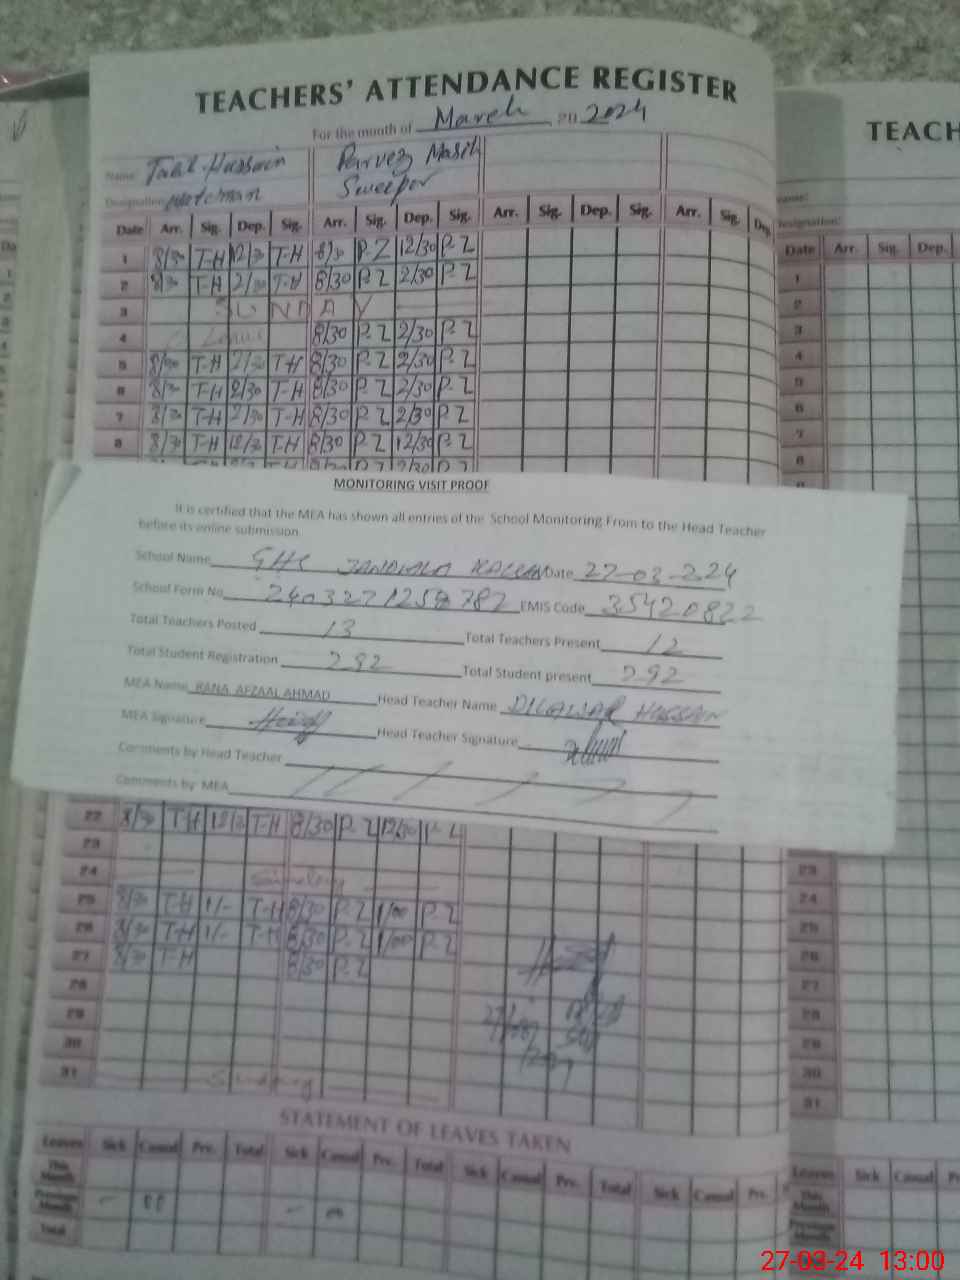 TEACHERS' ATTENDANCE REGISTER
For the month of March 2024
Name Hussain Parvez Masih
Designation Sweeper
Date Arr. Sig. Dep. Sig. Arr. Sig. Dep. Sig. Arr. Sig. Dep. Sig. Arr. Sig. Dep.
1 8/30 T-H 12/30 T-H 8/30 P.Z 12/30 P.Z
2 8/30 T-H 2/30 T-H 8/30 P.Z 2/30 P.Z
3 SUNDAY
4 8/30 P.Z 2/30 P.Z
5 T-H 2/30 T-H 8/30 P.Z 2/30 P.Z
6 8/30 T-H 2/30 T-H 8/30 P.Z 2/30 P.Z
7 8/30 T-H 2/30 T-H 8/30 P.Z 2/30 P.Z
8 8/30 T-H 12/30 T-H 8/30 P.Z 12/30 P.Z
MONITORING VISIT PROOF
It is certified that the MEA has shown all entries of the School Monitoring From to the Head Teacher
before its online submission.
School Name GHS Date 27-03-224
School Form No EMIS Code 35420822
Total Teachers Posted 13 Total Teachers Present 12
Total Student Registration 292 Total Student present 292
MEA Name RANA AFZAAL AHMAD Head Teacher Name DILAWAR HUSSAIN
MEA Signature Head Teacher Signature
Comments by Head Teacher
Comments by MEA
22 8/30 T-H 12/30 T-H 8/30 P.Z 12/30 P.Z
23
24 Sunday
25 8/30 T-H 1/- T-H 8/30 P.Z 1/00 P.Z
26 8/30 T-H 1/- T-H 8/30 P.Z 1/00 P.Z
27 8/30 T-H 8/30 P.Z
28
29
30
31 Sunday
STATEMENT OF LEAVES TAKEN
Leaves Sick Casual Prv. Total Sick Casual Prv. Total Sick Casual Prv. Total Sick Casual Prv.
This Month
Previous Month
Total
TEACH
Date Arr. Sig. Dep.
1
2
3
4
5
6
7
8
23
24
25
26
27
28
29
30
31
Leaves Sick Casual
This Month
Previous Month
27-03-24 13:00